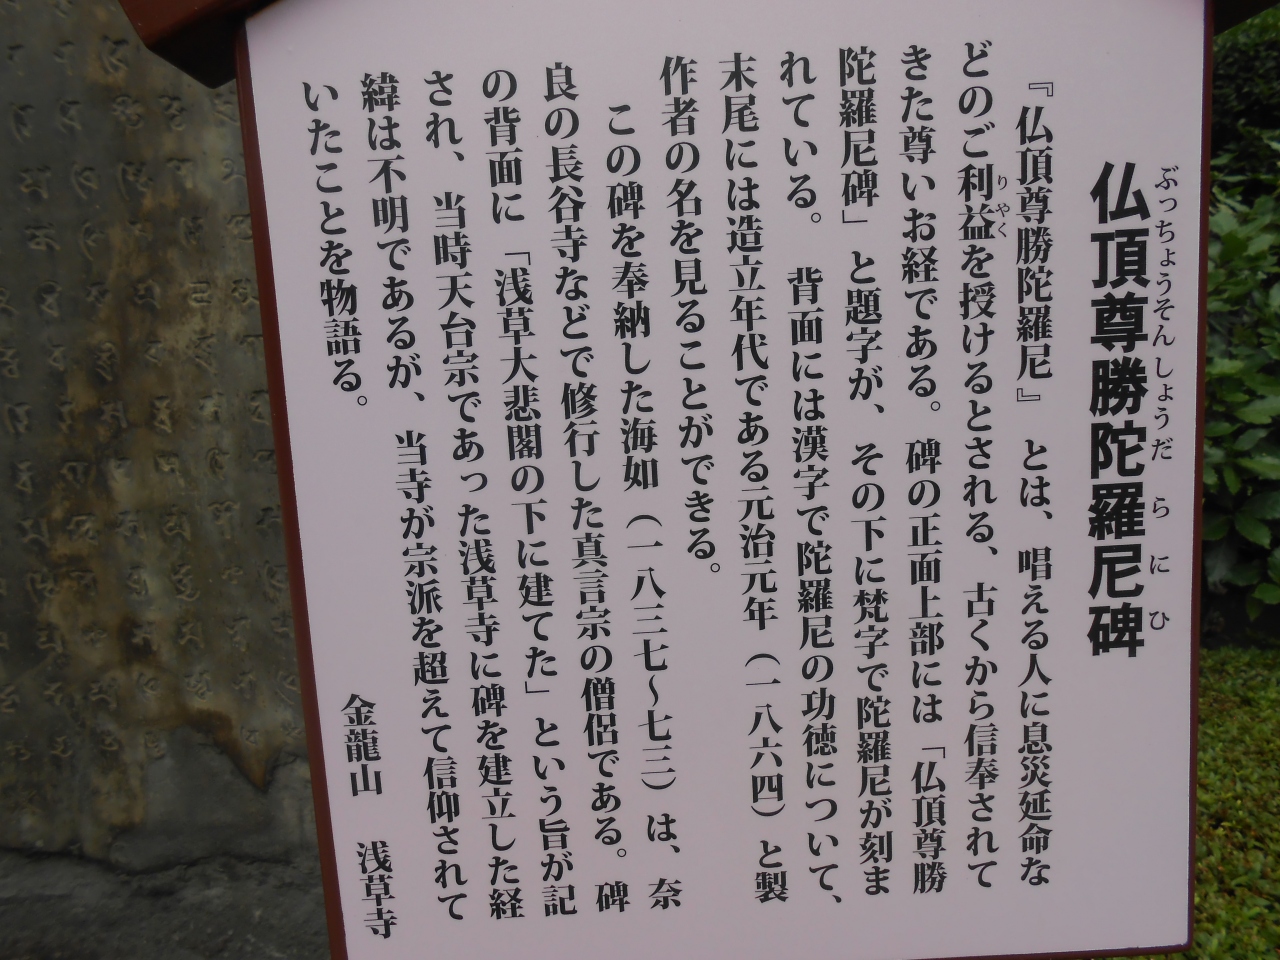 仏頂尊勝陀羅尼碑
ぶっちょうそんしょうだらにひ
『仏頂尊勝陀羅尼』とは、唱える人に息災延命な
どのご利益を授けるとされる、古くから信奉されて
りやく
きた尊いお経である。碑の正面上部には「仏頂尊勝
陀羅尼碑」と題字が、その下に梵字で陀羅尼が刻ま
れている。背面には漢字で陀羅尼の功徳について、
末尾には造立年代である元治元年（一八六四）と製
作者の名を見ることができる。
この碑を奉納した海如（一八三七〜七三）は、奈
良の長谷寺などで修行した真言宗の僧侶である。碑
の背面に「浅草大悲閣の下に建てた」という旨が記
され、当時天台宗であった浅草寺に碑を建立した経
緯は不明であるが、当寺が宗派を超えて信仰されて
いたことを物語る。
金龍山 浅草寺